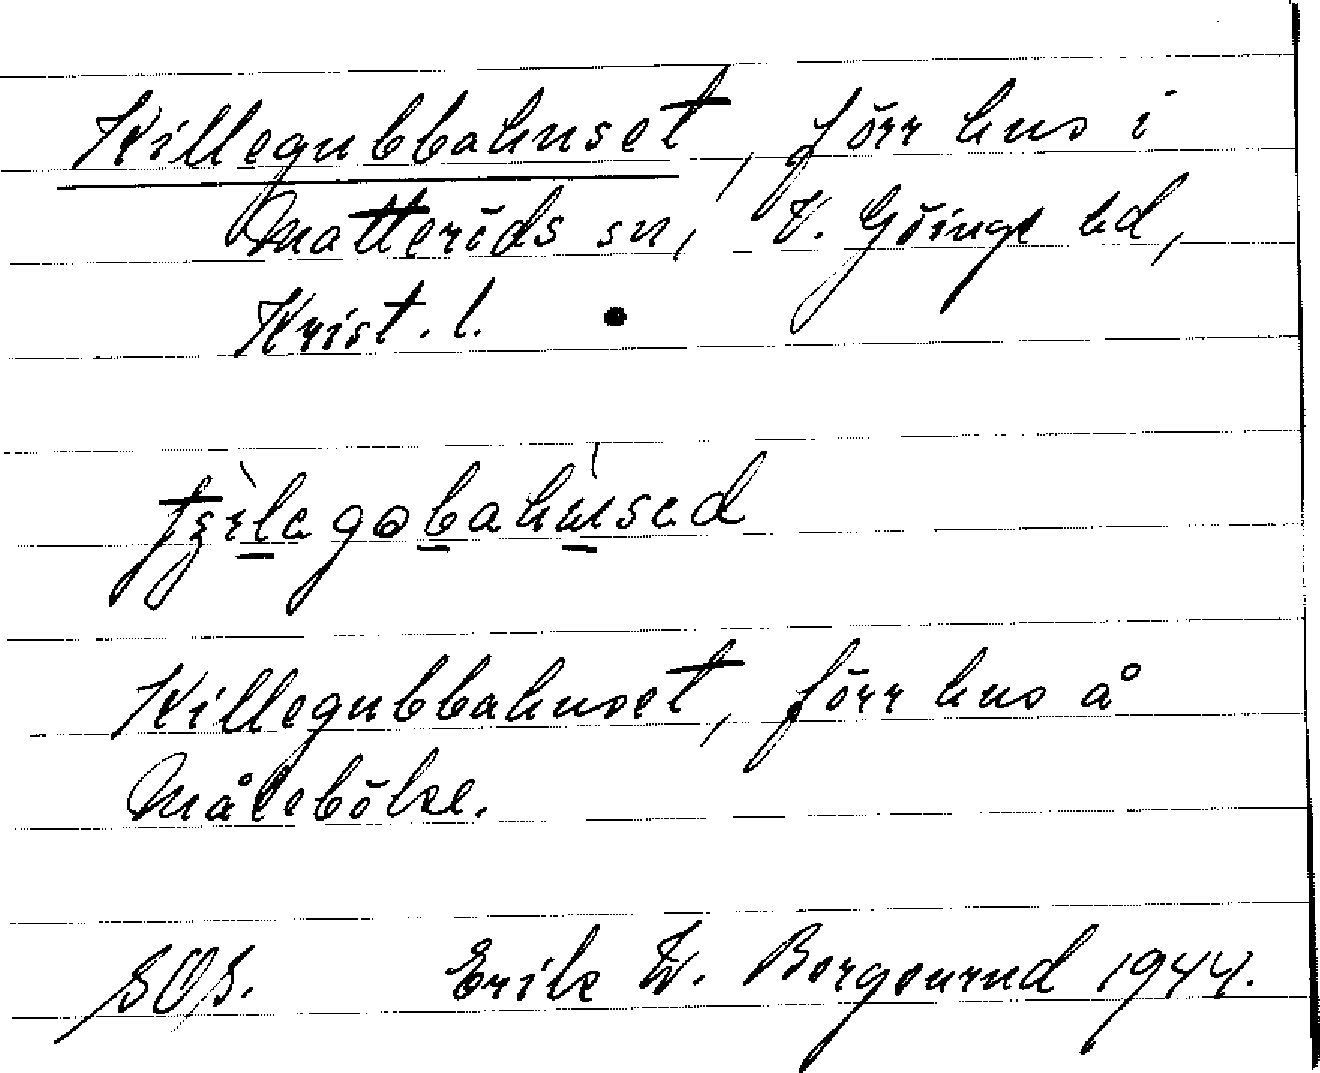 Killegubbahuset, förr hus i
Matteröds sn, V. Göinge hd,
Krist. l.
Killegubbahuset, förr hus å
Målebölke.
SOS. Erik W. 1944.